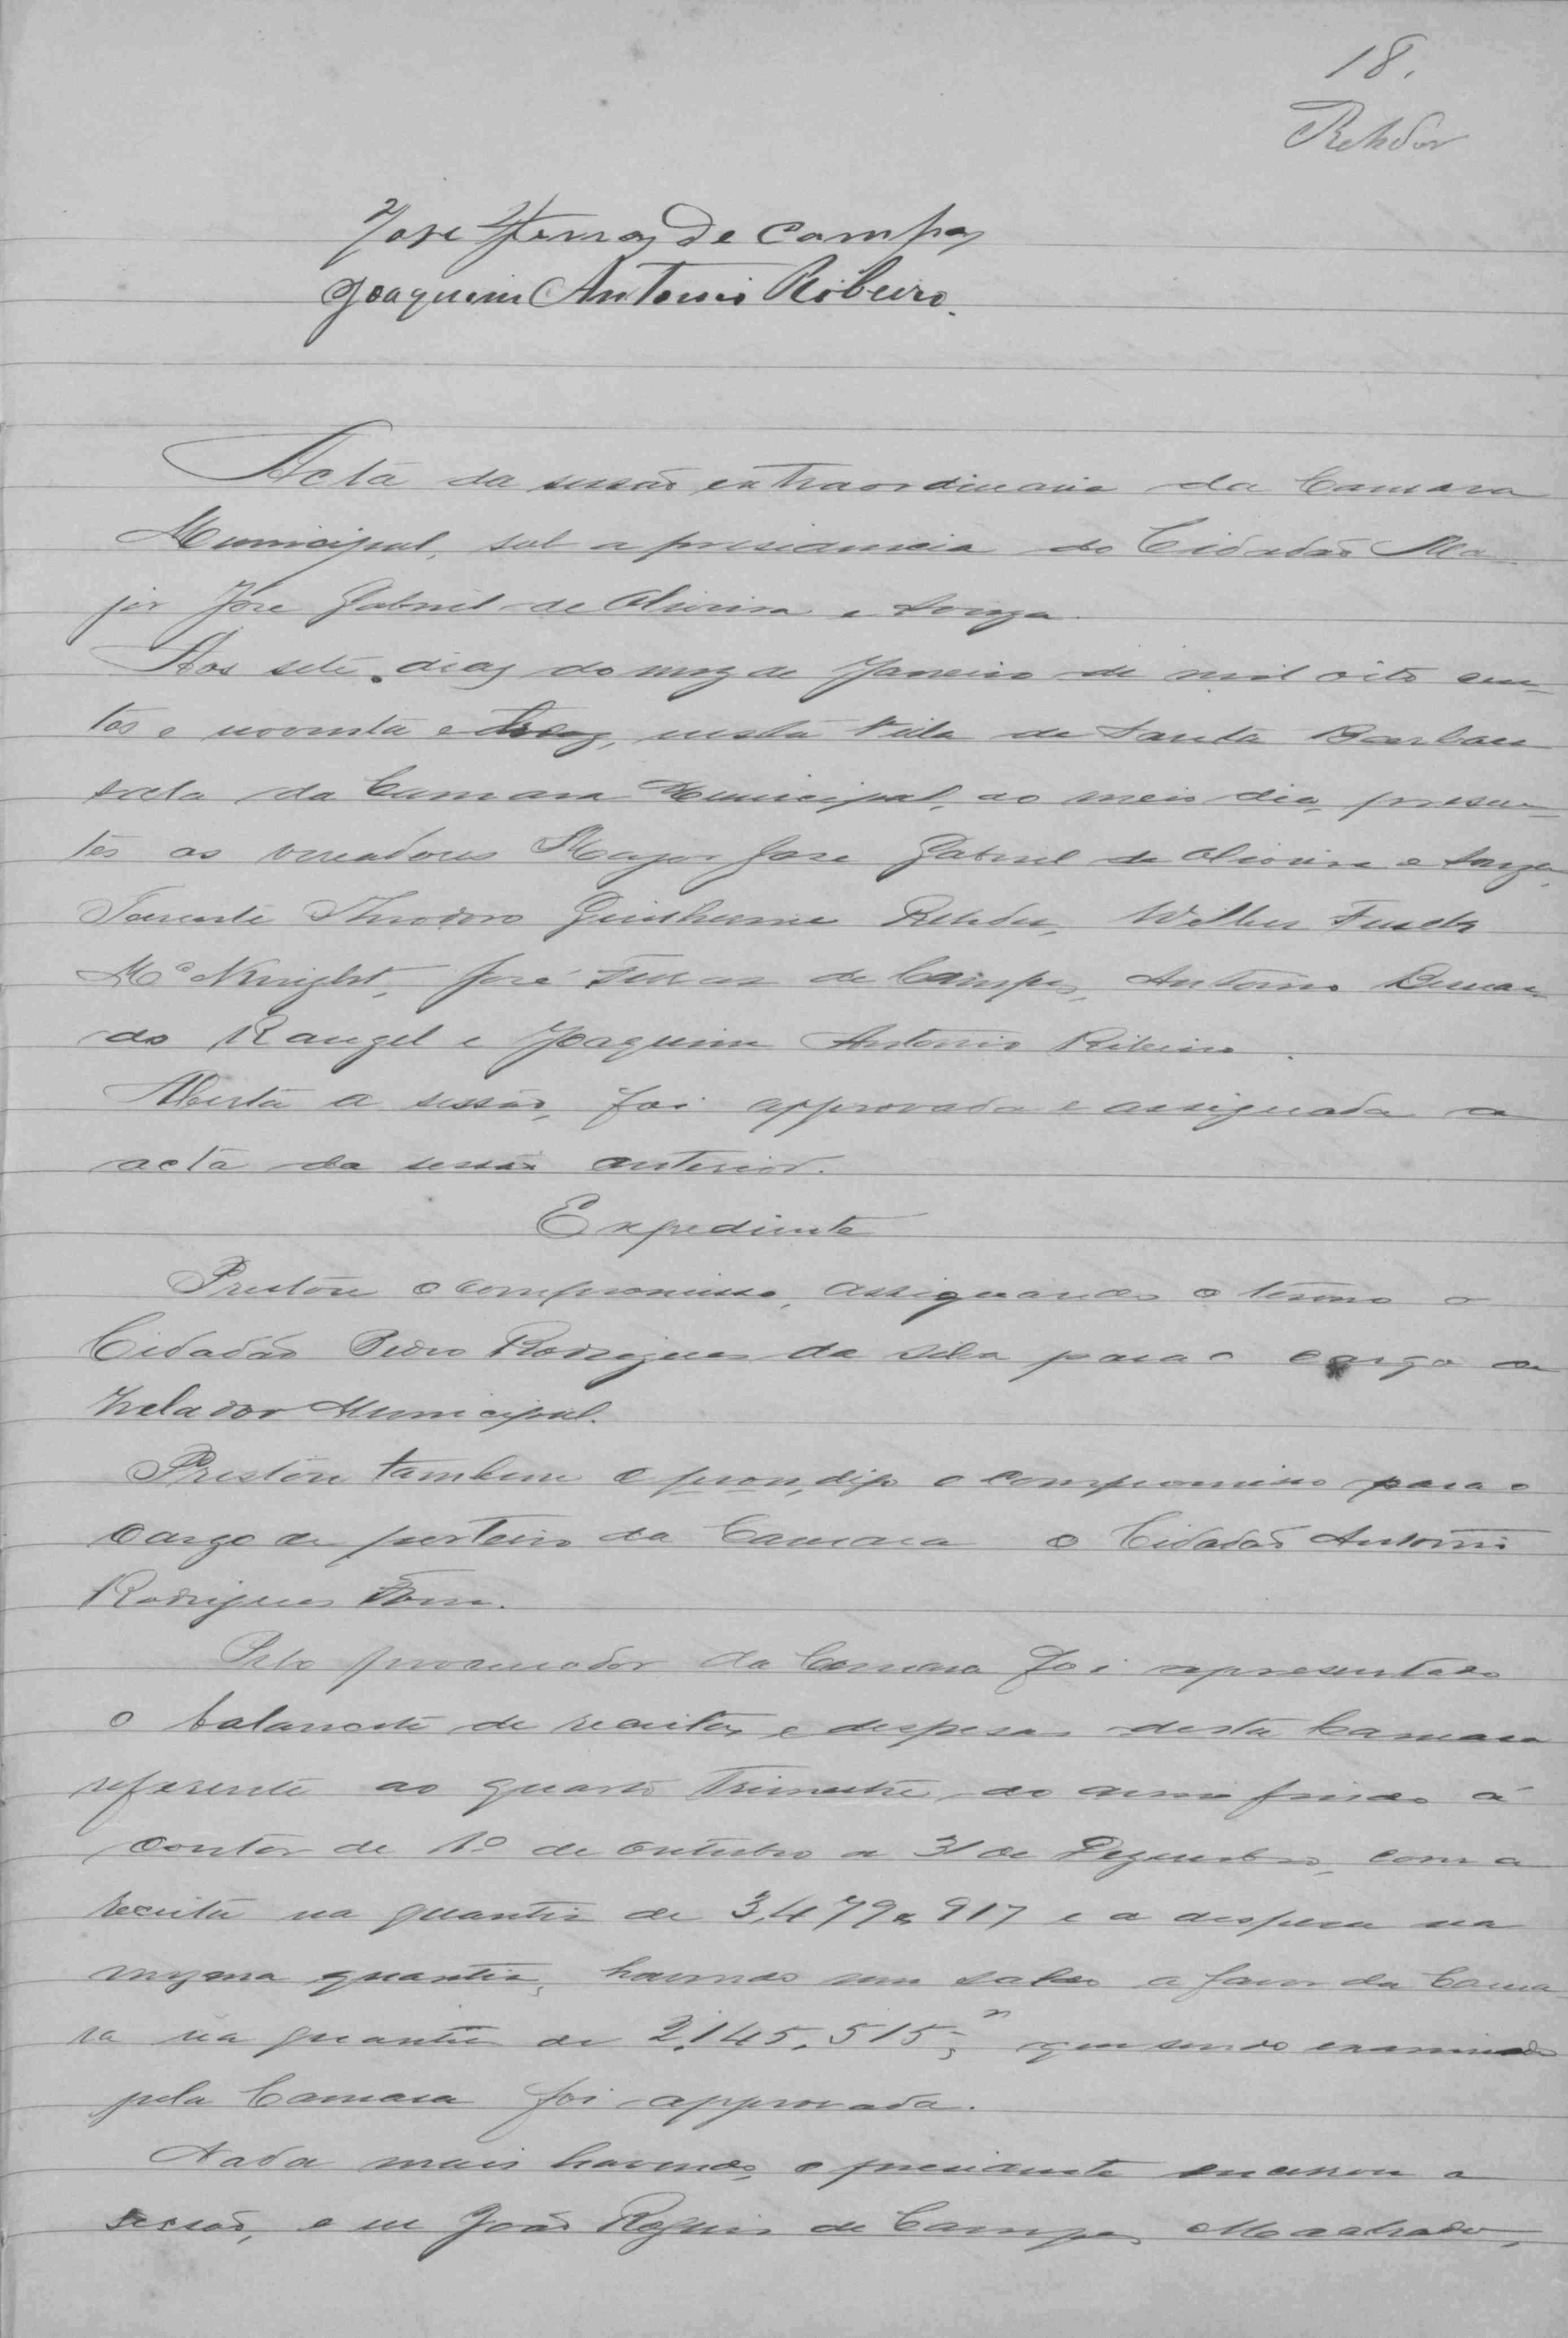 18.
Rehder
José Ferraz de Campos
Joaquim Antonio Ribeiro.
Acta da sessão extraordinaria da Camara
Municipal, sob a presidencia do Cidadão Ma-
jor José Gabriel de Oliveira e Souza.
Aos sete dias do mez de Janeiro de mil oito cen-
tos e noventa e trez, nesta Villa de Santa Barbara
sala da Camara Municipal, ao meio dia, presen-
tes os vereadores Major José Gabriel de Oliveira e Souza,
Tenente Theodoro Guilherme Rehder, Wilber Fisck
Mc Knight, José Ferraz de Campos, Antonio Bernar-
do Rangel e Joaquim Antonio Ribeiro.
Aberta a sessão, foi approvada e assignada a
acta da sessão anterior.
Expediente
Prestou o compromisso, assignando o termo o
Cidadão Pedro Rodrigues da Silva para o cargo de
Zelador Municipal.
Prestou tambem o prom, digo o compromisso para o
cargo de porteiro da Camara o Cidadão Antonio
Rodrigues
Pelo procurador da Camara foi apresentado
o balancete de receitas e despesas desta Camara
referente ao quarto trimestre do anno findo á
contar de 1º de Outubro a 31 de Dezembro, com a
receita na quantia de 3,479,917 e a despesa na
mesma quantia, havendo um saldo a favor da Cama-
ra na quantia de 2,145.515; que sendo examinado
pela Camara foi approvada.
Nada mais havendo, o presidente encerrou a
sessão, e eu João de Campos Machado,